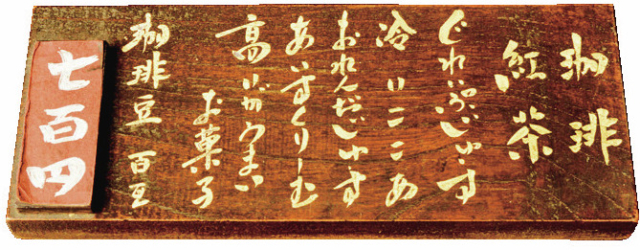 珈琲
紅茶
ぐれいぷじゅーす
冷しここあ
おれんぢじゅーす
あいすくりーむ
高いがうまい
お菓子
珈琲豆 百瓦
七百円